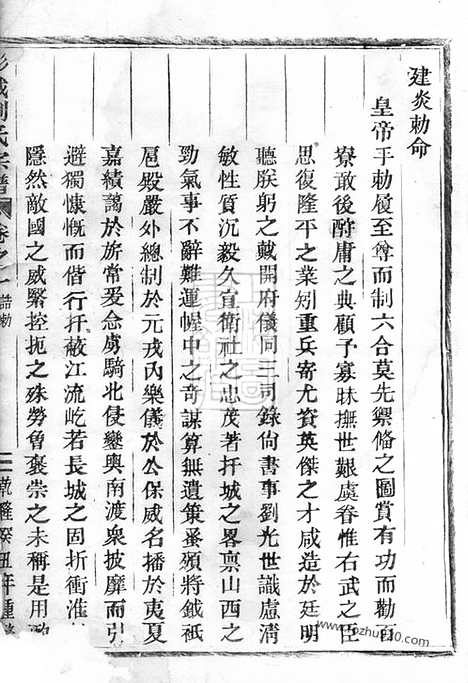 建炎勅命
皇帝手勅履至尊而制六合莫先禦脩之圖賞有功而勸百
寮敢後酧庸之典顧予寡昧撫世艱虞眷惟右武之臣
思復隆平之業矧重兵寄尤資英傑之才咸造於廷明
聽朕躬之戴開府儀同三司錄尚書事劉光世識慮淸
敏性質沉毅久宣衛社之忠茂著扞城之畧禀山西之
勁氣事不辭難運幄中之奇謀算無遺策曩頒將鉞祗
扈殿嚴外總制於元戎內樂儀於公保威名播於夷夏
嘉績謁於旂常爰念虜騎北侵鑾輿南渡衆披靡而引
避獨慷慨而偕行扞蔽江流屹若長城之固折衝淮
隱然敵國之威緊控扼之殊勞魯褒崇之未稱是用
城劉氏宗譜 卷之一 誥勅 二 乾隆癸丑年重
www.fozhu920.com